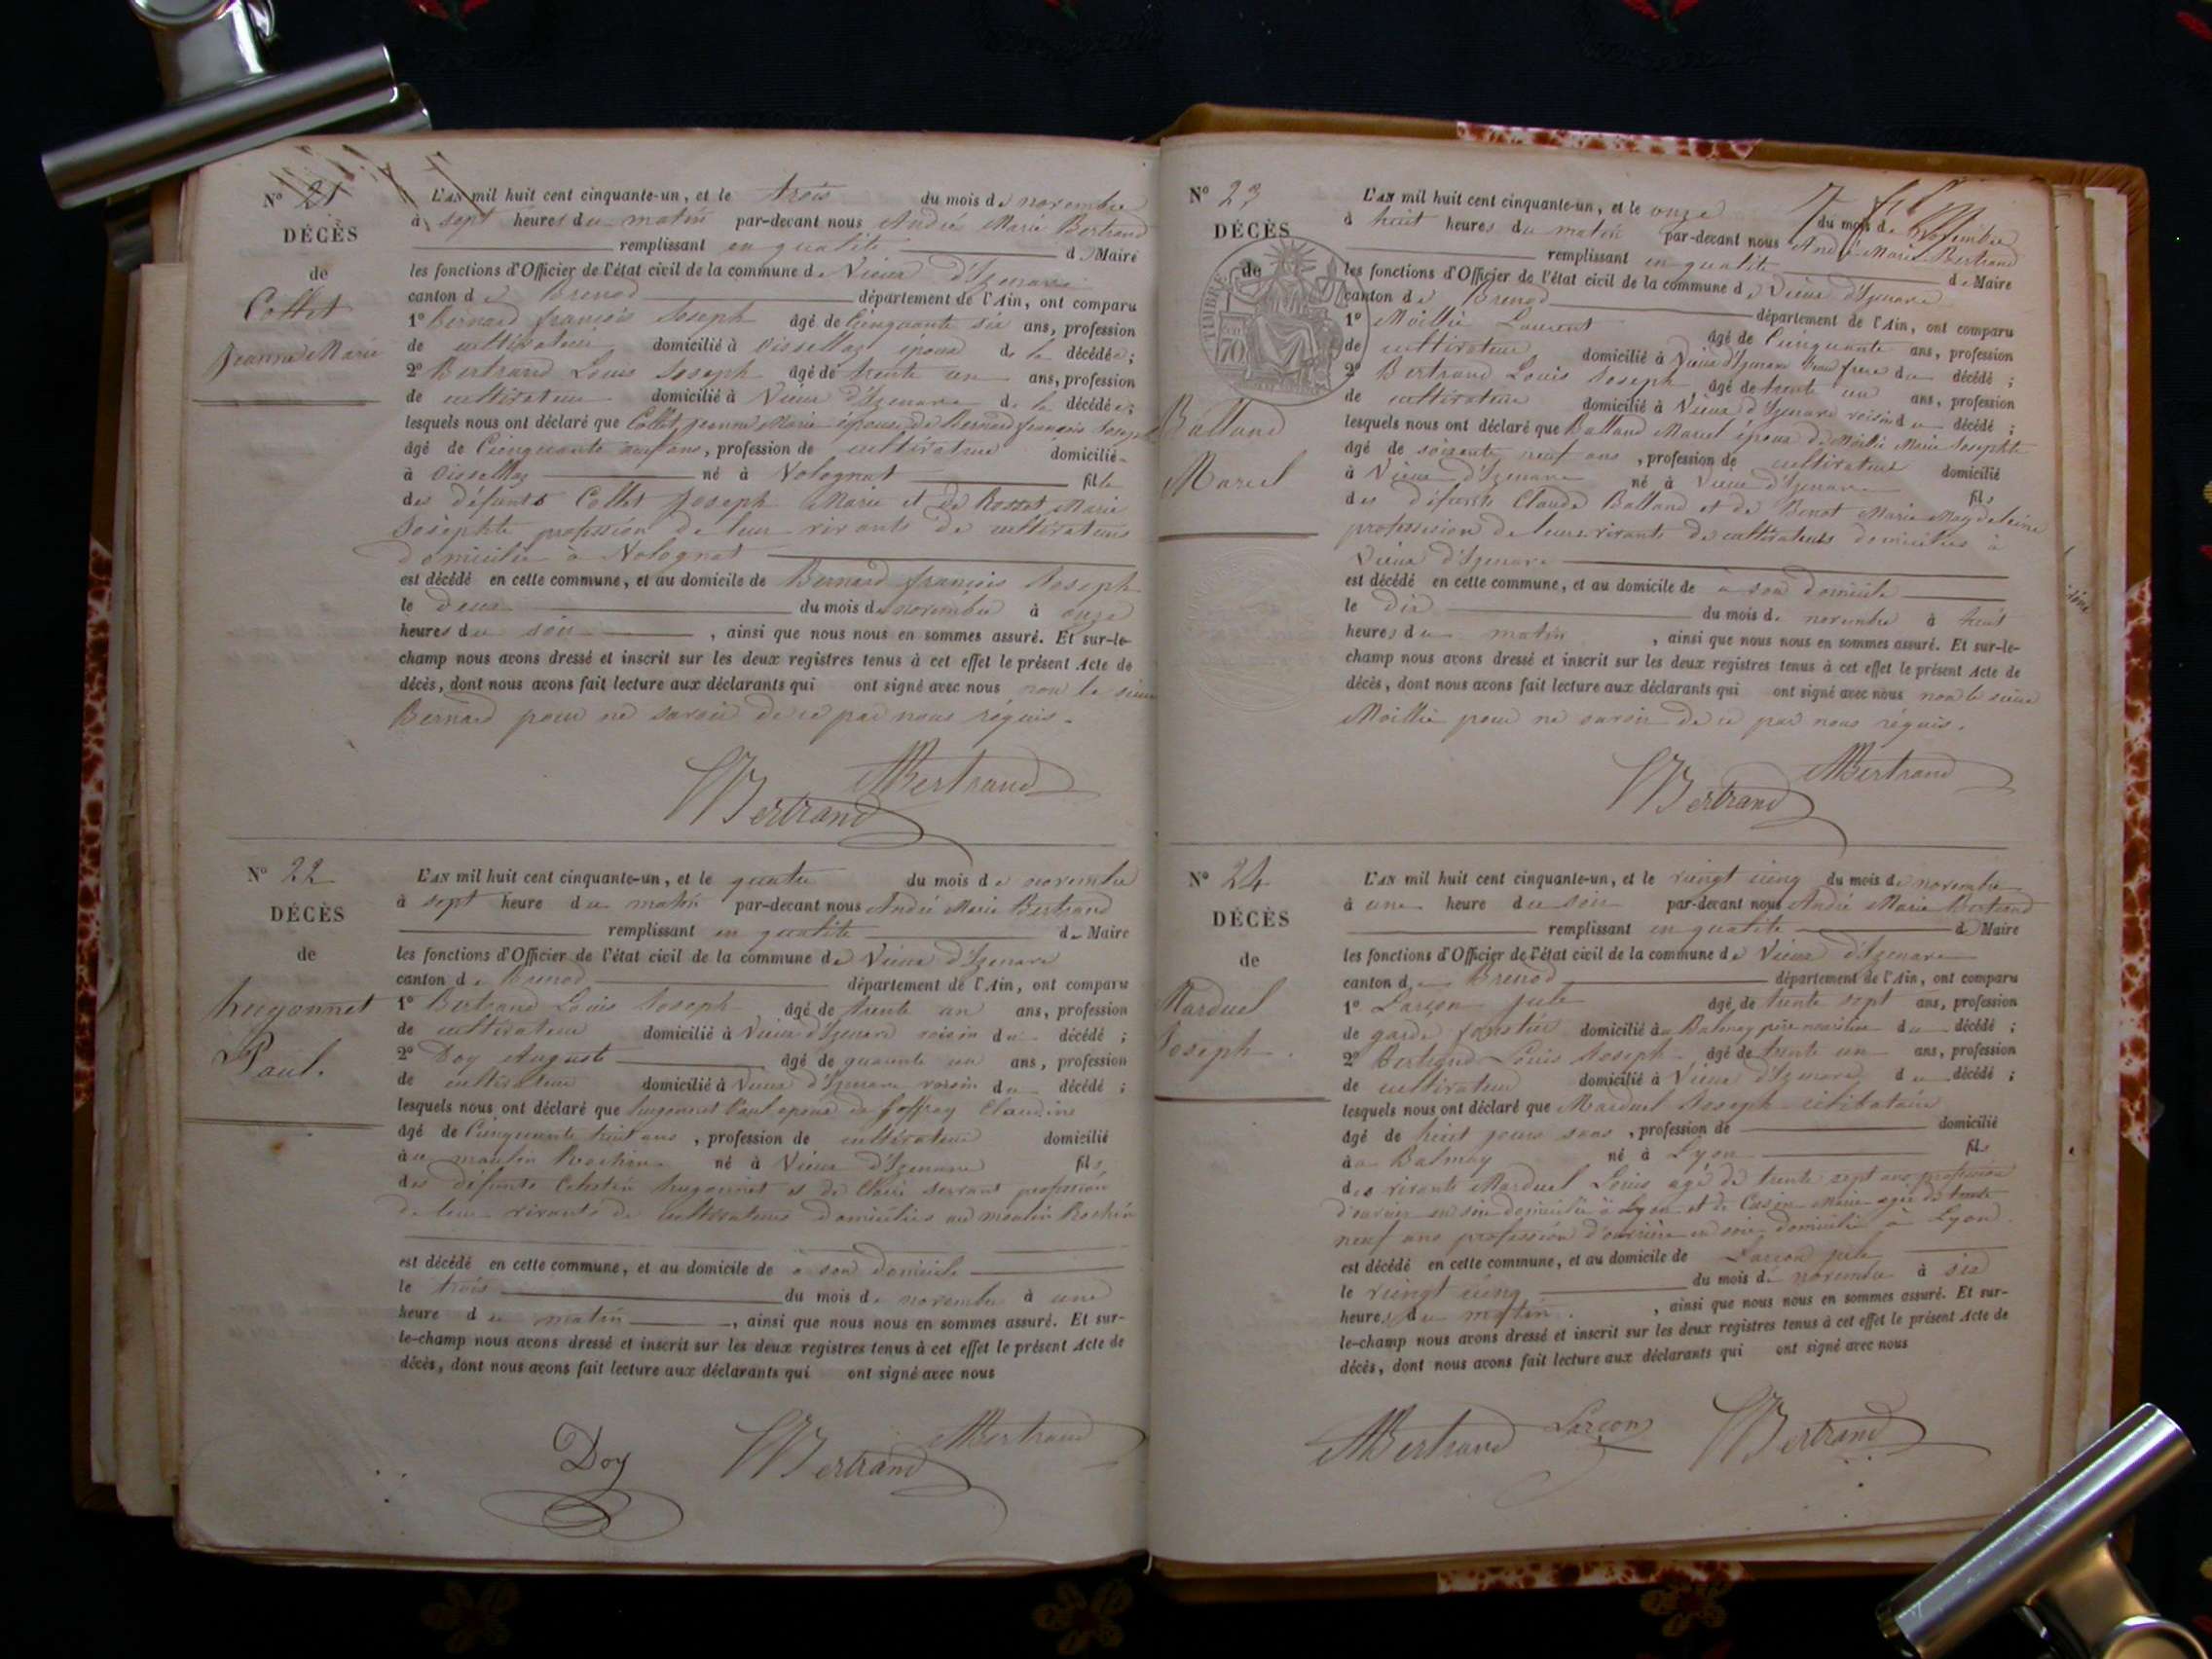 N° 21
DÉCÈS
de
Collet
Jeanne Marie
L'AN mil huit cent cinquante-un, et le trois du mois de novembre
à sept heures du matin par-devant nous André Marie Bertrand
remplissant en qualité de Maire
les fonctions d'Officier de l'état civil de la commune de Vieux d'Izenave
canton de Brenod département de l'Ain, ont comparu
1° Bernard françois Joseph âgé de Cinquante six ans, profession
de cultivateur domicilié à Oisellaz époux de la décédée;
2° Bertrand Louis Joseph âgé de trente un ans, profession
de cultivateur domicilié à Vieux d'Izenave de la décédée;
lesquels nous ont déclaré que Collet jeanne Marie épouse de Bernard françois Joseph
âgé de Cinquante ans, profession de cultivateur domicilié
à Oisellaz né à Nolognat fille
des défunts Collet Joseph Marie et de Rosset Marie
Josephte profession de leur vivants de cultivateurs
domiciliés à Nolognat
est décédé en cette commune, et au domicile de Bernard françois Joseph
le deux du mois de novembre à onze
heures du soir, ainsi que nous nous en sommes assuré. Et sur-le-
champ nous avons dressé et inscrit sur les deux registres tenus à cet effet le présent Acte de
décès, dont nous avons fait lecture aux déclarants qui ont signé avec nous non le sieur
Bernard pour ne savoir de ce par nous réquis.
Bertrand
Bertrand
N° 22
DÉCÈS
de
hugonnet
Paul.
L'AN mil huit cent cinquante-un, et le quatre du mois de novembre
à sept heure du matin par-devant nous André Marie Bertrand
remplissant en qualité de Maire
les fonctions d'Officier de l'état civil de la commune de Vieux d'Izenave
canton de Brenod département de l'Ain, ont comparu
1° Bertrand Louis Joseph âgé de trente un ans, profession
de cultivateur domicilié à Vieux d'Izenave voisin du décédé;
2° Doy Auguste âgé de quarante un ans, profession
de cultivateur domicilié à Vieux d'Izenave voisin du décédé;
lesquels nous ont déclaré que hugonnet Paul époux de Joffray Claudine
âgé de Cinquante huit ans, profession de cultivateur domicilié
au moulin Rochin né à Vieux d'Izenave fils
des défunts hugonnet et de Claire profession
de leur vivants de cultivateurs domiciliés au moulin Rochin
est décédé en cette commune, et au domicile de à son domicile
le trois du mois de novembre à une
heure du matin, ainsi que nous nous en sommes assuré. Et sur-
le-champ nous avons dressé et inscrit sur les deux registres tenus à cet effet le présent Acte de
décès, dont nous avons fait lecture aux déclarants qui ont signé avec nous
Doy Bertrand Bertrand
N° 23
DÉCÈS
de
TIMBRE
70
Balland
Marcel
L'AN mil huit cent cinquante-un, et le onze du mois de novembre
à huit heures du matin par-devant nous André Marie Bertrand
remplissant en qualité de Maire
les fonctions d'Officier de l'état civil de la commune de Vieux d'Izenave
canton de Brenod département de l'Ain, ont comparu
1° Moillié Laurent âgé de Cinquante ans, profession
de cultivateur domicilié à Vieux d'Izenave beau frère du décédé;
2° Bertrand Louis Joseph âgé de trente un ans, profession
de cultivateur domicilié à Vieux d'Izenave voisin du décédé;
lesquels nous ont déclaré que Balland Marcel époux de Moillié Marie Josephte
âgé de soixante neuf ans, profession de cultivateur domicilié
à Vieux d'Izenave né à Vieux d'Izenave fils
des défunts Claude Balland et de Benot Marie Magdeleine
profession de leurs vivants de cultivateurs domiciliés à
Vieux d'Izenave
est décédé en cette commune, et au domicile de à son domicile
le dix du mois de novembre à huit
heures du matin, ainsi que nous nous en sommes assuré. Et sur-le-
champ nous avons dressé et inscrit sur les deux registres tenus à cet effet le présent Acte de
décès, dont nous avons fait lecture aux déclarants qui ont signé avec nous non le sieur
Moillié pour ne savoir de ce par nous réquis.
Bertrand
Bertrand
N° 24
DÉCÈS
de
Marduel
Joseph.
L'AN mil huit cent cinquante-un, et le vingt cinq du mois de novembre
à une heure du soir par-devant nous André Marie Bertrand
remplissant en qualité de Maire
les fonctions d'Officier de l'état civil de la commune de Vieux d'Izenave
canton de Brenod département de l'Ain, ont comparu
1° Larçon jule âgé de trente sept ans, profession
de garde domicilié à Balmay père nourricier du décédé;
2° Bertrand Louis Joseph âgé de trente un ans, profession
de cultivateur domicilié à Vieux d'Izenave du décédé;
lesquels nous ont déclaré que Marduel Joseph célibataire
âgé de huit jours sans, profession de domicilié
à Balmay né à Lyon fils
des vivants Marduel Louis agé de trente sept ans profession
d'ouvrier en soie domicilié à Lyon et de Marie agée de trente
neuf ans profession d'ouvrière en soie domicilié à Lyon
est décédé en cette commune, et au domicile de Larçon jule
le vingt cinq du mois de novembre à six
heures du matin, ainsi que nous nous en sommes assuré. Et sur-
le-champ nous avons dressé et inscrit sur les deux registres tenus à cet effet le présent Acte de
décès, dont nous avons fait lecture aux déclarants qui ont signé avec nous
Bertrand Larçon Bertrand